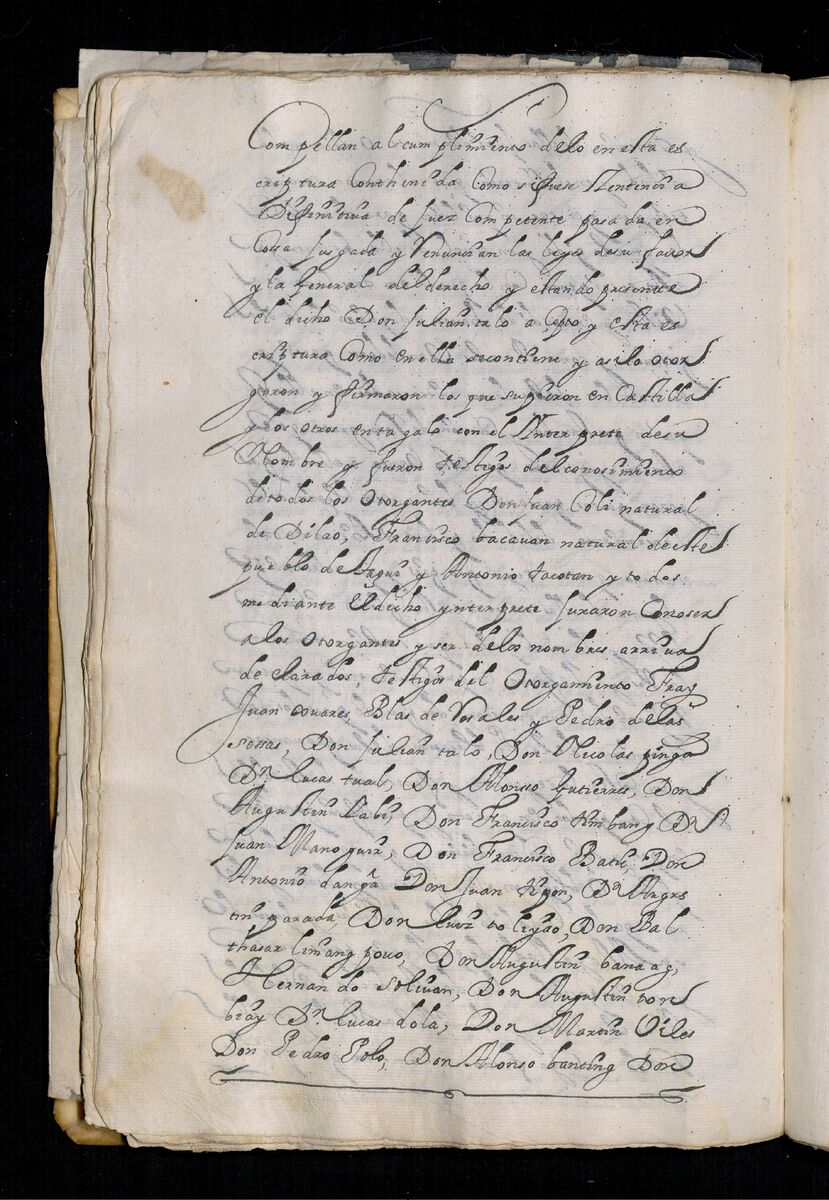 Compellan al cumplimiento delo en esta es
criptura Conthenida Como si fuese Sentencia
Difinitiva de Juez Competente pasada en
Cossa jusgada y Renuncian las leyes desu favor
y la General del derecho y estando presente
el dicho Don Julian talo a Cepto y esta es
criptura Como en ella se contiene y asi lo otor
garon y firmaron los que supieron en Castilla
y los otros en tagalo con el Ynterprete desu
Nombre y fueron testigos del conosimiento
de todos los Otorgantes Don Juan Coli natural
de Dilao, Francisco bacauan natural deste
pueblo de Taguii y Antonio tacotan y todos
mediante El dicho ynterprete juraron Conoser
alos Otorgantes y ser delos nombres arriua
declarados, testigos del Otorgamiento Fray
Juan touares, Blas de Rosales y Pedro delas
sossas, Don Julian talo, Don Nicolas pinga
Dn lucas tual, Don Alonso Gutierres, Don
Augustin Labi, Don Francisco timbang Dn
Juan Manoguit, Don Francisco Bath, Don
Antonio danga Don Juan tigon, Dn Augus
tin parada, Don luis toliyao, Don Bal
thasar linang pouo, Don Augustin banaag,
Hernando soliuan, Don Augustin ton
biay Dn lucas dola, Don Martin Viles
Don Pedro Polo, Don Alonso banting Don